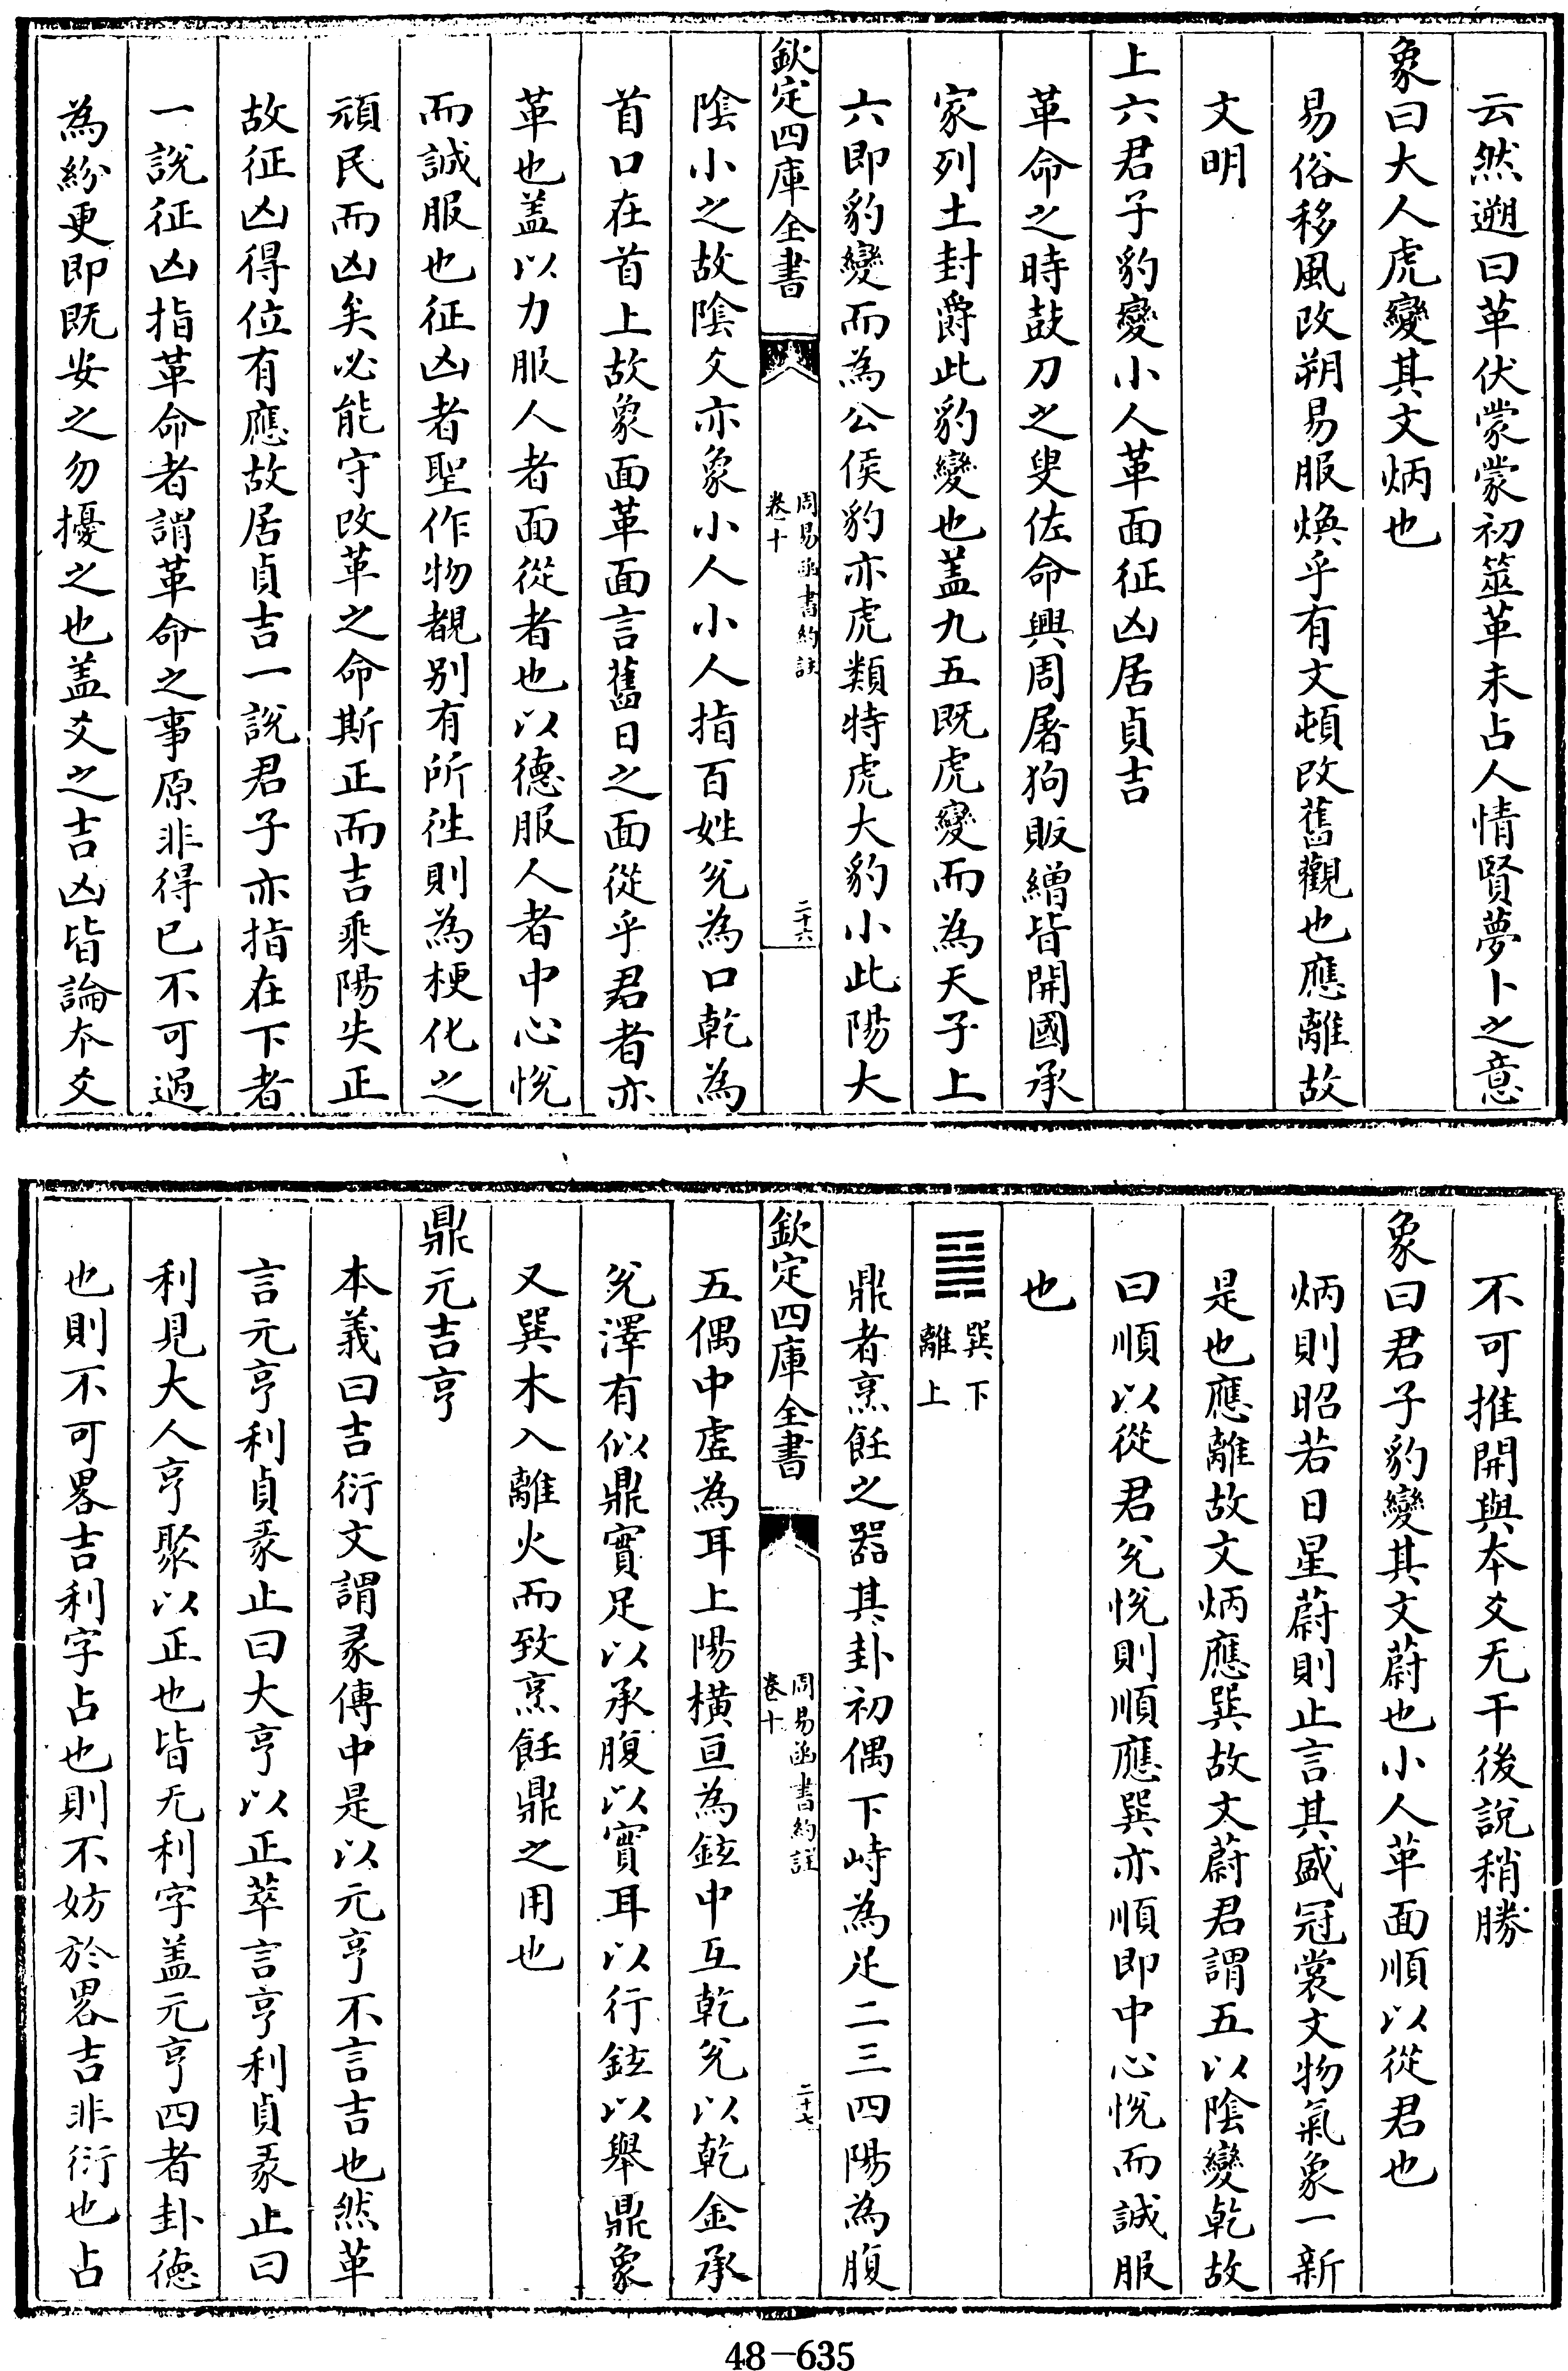 云然遡曰革伏蒙蒙初筮革未占人情賢夢卜之意
象曰大人虎變其文炳也
易俗移風改朔易服煥乎有文頓改舊觀也應離故
文明
上六君子豹變小人革面征凶居貞吉
革命之時鼓刀之叟佐命興周屠狗販繒皆開國承
家列土封爵此豹變也盖九五既虎變而為天子上
六即豹變而為公侯豹亦虎類特虎大豹小此陽大
欽定四庫全書
周易函書約註
卷十
二十六
陰小之故陰爻亦象小人小人指百姓兊為口乾為
首口在首上故象面革面言舊日之面從乎君者亦
革也盖以力服人者面從者也以德服人者中心悅
而誠服也征凶者聖作物覩别有所徃則為梗化之
頑民而凶矣必能守改革之命斯正而吉乘陽失正
故征凶得位有應故居貞吉一說君子亦指在下者
一說征凶指革命者謂革命之事原非得已不可過
為紛更即既安之勿擾之也盖爻之吉凶皆論本爻
不可推開與本爻无干後說稍勝
象曰君子豹變其文蔚也小人革面順以從君也
炳則昭若日星蔚則止言其盛冠裳文物氣象一新
是也應離故文炳應巽故文蔚君謂五以陰變乾故
曰順以從君兊悅則順應巽亦順即中心悅而誠服
也
䷱
巽下
離上
鼎者烹飪之器其卦初偶下峙為足二三四陽為腹
欽定四庫全書
周易函書約註
卷十
二十七
五偶中虛為耳上陽橫亘為鉉中互乾兊以乾金承
兊澤有似鼎實足以承腹以實耳以行鉉以舉鼎象
又巽木入離火而致烹飪鼎之用也
鼎元吉亨
本義曰吉衍文謂彖傳中是以元亨不言吉也然革
言元亨利貞彖止曰大亨以正萃言亨利貞彖止曰
利見大人亨聚以正也皆无利字盖元亨四者卦德
也則不可畧吉利字占也則不妨於畧吉非衍也占
48-635